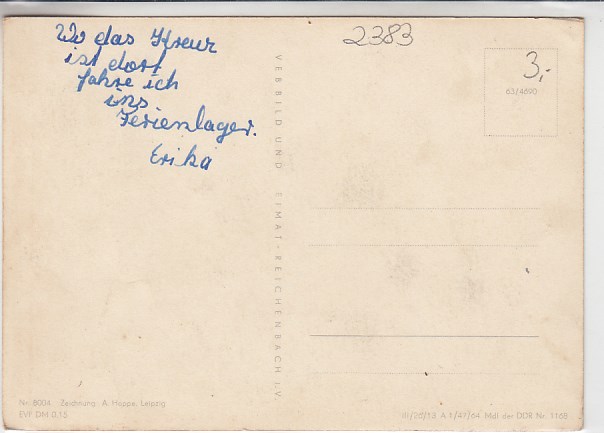 Wo das Kreuz
ist dort
fahre ich
ins
Ferienlager.
Erika
2383
3,-
63/4690
VEB BILD UND HEIMAT - REICHENBACH I. V.
Nr. 8004 Zeichnung: A. Hoppe, Leipzig
EVP DM 0,15
III/26/13 A 1/47/64 MdI der DDR Nr. 1168